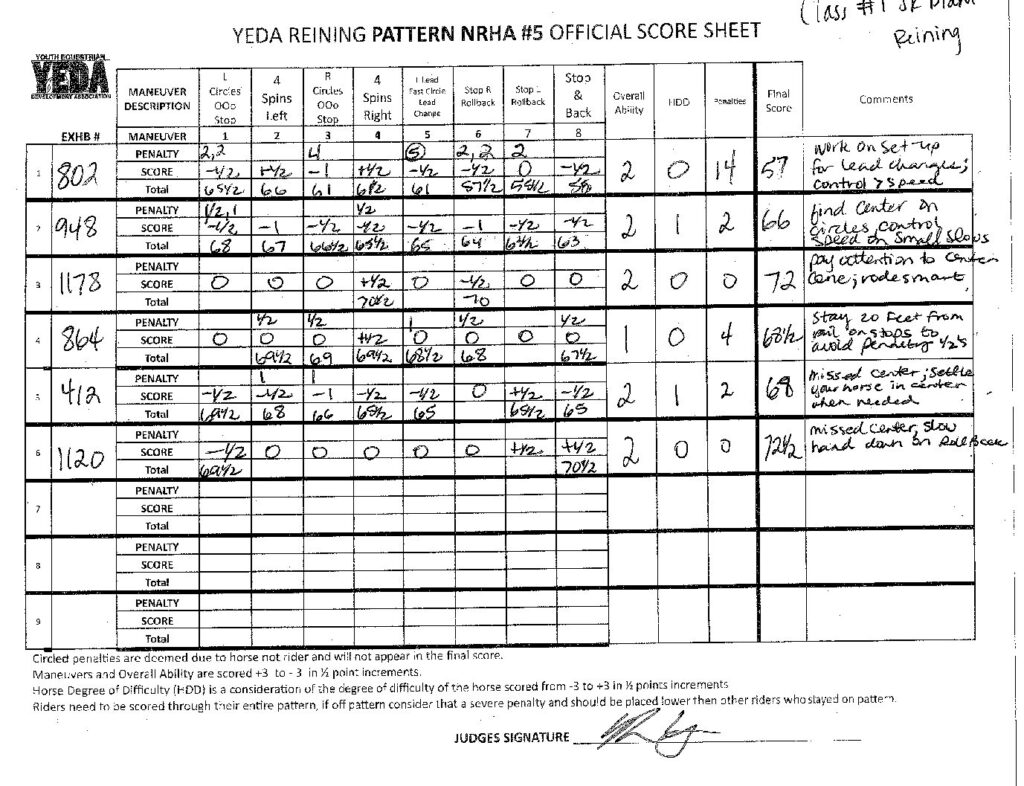 Class #1 JR
Reining
YEDA REINING PATTERN NRHA #5 OFFICIAL SCORE SHEET
YOUTH EQUESTRIAN
YEDA
DEVELOPMENT ASSOCIATION
EXHB #
MANEUVER DESCRIPTION L Circles OOo Stop 4 Spins Left R Circles OOo Stop 4 Spins Right Lead Fast Circle Lead Change Stop R Rollback Stop L Rollback Stop & Back Overall Ability HDD Penalties Final Score Comments
MANEUVER 1 2 3 4 5 6 7 8
1 802
PENALTY 2,2 4 5 2,2 2
SCORE -1/2 +1/2 -1 +1/2 -1/2 -1/2 0 -1/2 2 0 14 57
Total 65 1/2 66 61 61 1/2 61 57 1/2 58
work on set-up
for lead changes;
control > speed
2 948
PENALTY 1/2,1 1/2
SCORE -1/2 -1 -1/2 -1/2 -1/2 -1 -1/2 -1/2 2 1 2 66
Total 68 67 66 1/2 65 1/2 65 64 63 1/2 63
find center on
circles, control
speed on small slows
3 1178
PENALTY
SCORE 0 0 0 +1/2 0 -1/2 0 0 2 0 0 72
Total 70 1/2 70
pay attention to center
cone; rode smart
4 864
PENALTY 1/2 1/2 1 1/2 1/2
SCORE 0 0 0 +1/2 0 0 0 0 1 0 4 68 1/2
Total 69 1/2 69 69 1/2 68 1/2 68 67 1/2
Stay 20 feet from
rail on stops to
avoid penalty 1/2's
5 412
PENALTY 1 1
SCORE -1/2 -1/2 -1 -1/2 -1/2 0 +1/2 -1/2 2 1 2 68
Total 69 1/2 68 66 65 1/2 65 65 1/2 65
missed center; settle
your horse in center
when needed
6 1120
PENALTY
SCORE -1/2 0 0 0 0 0 +1/2 +1/2 2 0 0 72 1/2
Total 69 1/2 70 1/2
missed center, slow
hand down on Rollback
7
PENALTY
SCORE
Total
8
PENALTY
SCORE
Total
9
PENALTY
SCORE
Total
Circled penalties are deemed due to horse not rider and will not appear in the final score.
Maneuvers and Overall Ability are scored +3 to - 3 in ½ point increments.
Horse Degree of Difficulty (HDD) is a consideration of the degree of difficulty of the horse scored from -3 to +3 in ½ points increments
Riders need to be scored through their entire pattern, if off pattern consider that a severe penalty and should be placed lower then other riders who stayed on pattern.
JUDGES SIGNATURE